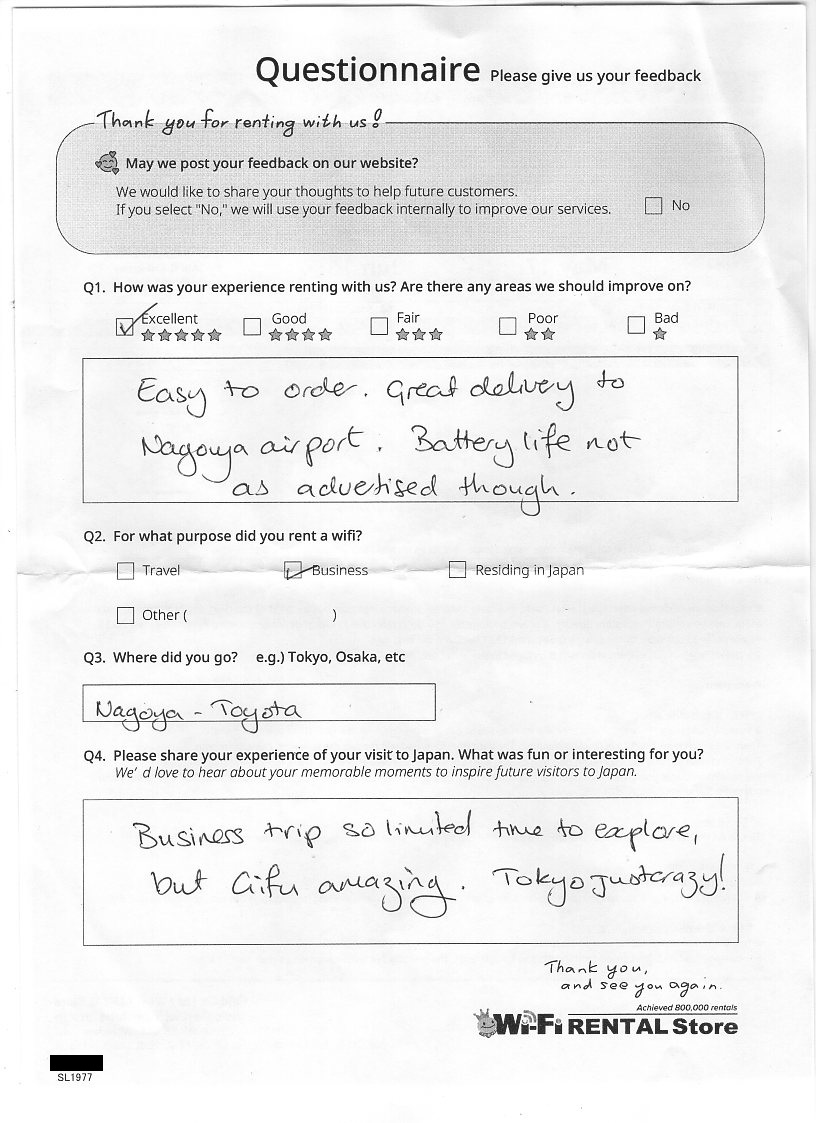 Questionnaire Please give us your feedback
Thank you for renting with us!
May we post your feedback on our website?
We would like to share your thoughts to help future customers.
If you select "No," we will use your feedback internally to improve our services.
No
Q1. How was your experience renting with us? Are there any areas we should improve on?
Excellent Good Fair Poor Bad
Easy to order. Great delivery to
Nagoya airport. Battery life not
as advertised though.
Q2. For what purpose did you rent a wifi?
Travel Business Residing in Japan
Other ( )
Q3. Where did you go? e.g.) Tokyo, Osaka, etc
Nagoya - Toyota
Q4. Please share your experience of your visit to Japan. What was fun or interesting for you?
We' d love to hear about your memorable moments to inspire future visitors to Japan.
Business trip so limited time to explore,
but Gifu amazing. Tokyo just crazy!
Thank you,
and see you again.
Achieved 800,000 rentals
Wi-Fi RENTAL Store
SL1977